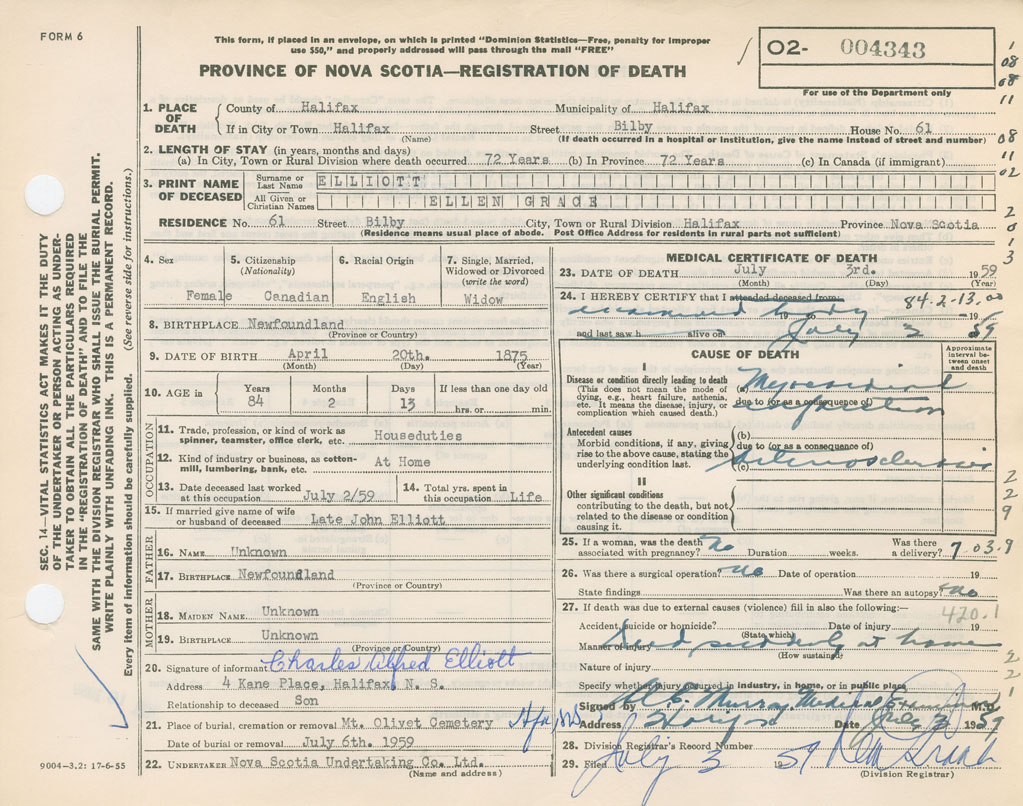 FORM 6
This form, if placed in an envelope, on which is printed "Dominion Statistics—Free, penalty for improper
use $50," and properly addressed will pass through the mail "FREE"
PROVINCE OF NOVA SCOTIA—REGISTRATION OF DEATH
02- 004343
For use of the Department only
1
08
08
11
08
11
02
2
0
1
3
SEC. 14—VITAL STATISTICS ACT MAKES IT THE DUTY
OF THE UNDERTAKER OR PERSON ACTING AS UNDER-
TAKER TO OBTAIN ALL THE PARTICULARS REQUIRED
IN THE "REGISTRATION OF DEATH" AND TO FILE THE
SAME WITH THE DIVISION REGISTRAR WHO SHALL ISSUE THE BURIAL PERMIT.
WRITE PLAINLY WITH UNFADING INK. THIS IS A PERMANENT RECORD.
Every item of information should be carefully supplied. (See reverse side for instructions.)
1. PLACE OF DEATH
County of Halifax Municipality of Halifax
If in City or Town Halifax Street Bilby House No. 61
(Name) (If death occurred in a hospital or institution, give the name instead of street and number)
2. LENGTH OF STAY (in years, months and days)
(a) In City, Town or Rural Division where death occurred 72 Years (b) In Province 72 Years (c) In Canada (if immigrant)
3. PRINT NAME OF DECEASED
Surname or Last Name ELLIOTT
All Given or Christian Names ELLEN GRACE
RESIDENCE No. 61 Street Bilby City, Town or Rural Division Halifax Province Nova Scotia
(Residence means usual place of abode. Post Office Address for residents in rural parts not sufficient)
4. Sex
Female
5. Citizenship
(Nationality)
Canadian
6. Racial Origin
English
7. Single, Married,
Widowed or Divorced
(write the word)
Widow
8. BIRTHPLACE Newfoundland
(Province or Country)
9. DATE OF BIRTH April 20th. 1875
(Month) (Day) (Year)
10. AGE in
Years Months Days If less than one day old
84 2 13 hrs. or min.
OCCUPATION
11. Trade, profession, or kind of work as
spinner, teamster, office clerk, etc. Houseduties
12. Kind of industry or business, as cotton-
mill, lumbering, bank, etc. At Home
13. Date deceased last worked
at this occupation July 2/59
14. Total yrs. spent in
this occupation Life
15. If married give name of wife
or husband of deceased Late John Elliott
FATHER
16. NAME Unknown
17. BIRTHPLACE Newfoundland
(Province or Country)
MOTHER
18. MAIDEN NAME Unknown
19. BIRTHPLACE Unknown
(Province or Country)
20. Signature of informant Charles Alfred Elliott
Address 4 Kane Place, Halifax, N. S.
Relationship to deceased Son
21. Place of burial, cremation or removal Mt. Olivet Cemetery
Date of burial or removal July 6th. 1959
22. UNDERTAKER Nova Scotia Undertaking Co. Ltd.
(Name and address)
9004-3.2: 17-6-55
MEDICAL CERTIFICATE OF DEATH
23. DATE OF DEATH July 3rd. 1959
(Month) (Day) (Year)
24. I HEREBY CERTIFY that I attended deceased from:
84.2-13.00
examined body 19
and last saw h alive on July 3 1959
CAUSE OF DEATH
Approximate
interval be-
tween onset
and death
I
Disease or condition directly leading to death
(This does not mean the mode of
dying, e.g., heart failure, asthenia,
etc. It means the disease, injury, or
complication which caused death.)
(a) Myocardial
due to (or as a consequence of)
infarction
Antecedent causes
Morbid conditions, if any, giving
rise to the above cause, stating the
underlying condition last.
(b)
due to (or as a consequence of)
(c) Arteriosclerosis
II
Other significant conditions
contributing to the death, but not
related to the disease or condition
causing it.
2
2
9
25. If a woman, was the death
associated with pregnancy? No Duration weeks. Was there
a delivery? 7 03.9
26. Was there a surgical operation? No Date of operation 19
State findings Was there an autopsy? No
27. If death was due to external causes (violence) fill in also the following:—
420.1
Accident, suicide or homicide? Date of injury 19
(State which)
Manner of injury Died suddenly at home
(How sustained)
Nature of injury
Specify whether injury occurred in industry, in home, or in public place
Signed by Murray Medical Examiner M.D.
Address Date July 3 1959
28. Division Registrar's Record Number
29. Filed July 3 1959
(Division Registrar)